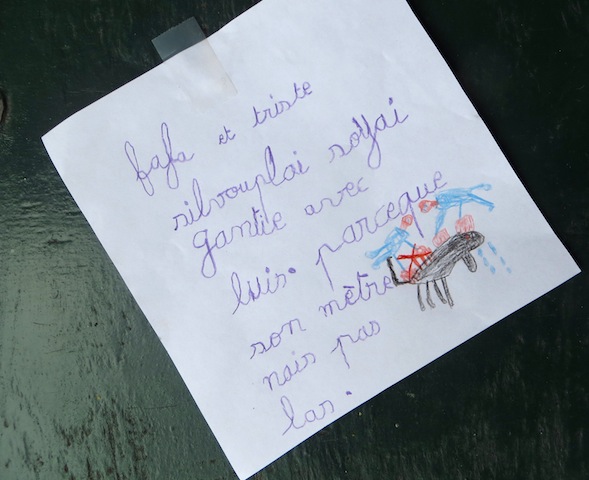 fafa et triste
silvouplai soyai
gantie avec
luis. parceque
son mètre
nais pas
las.